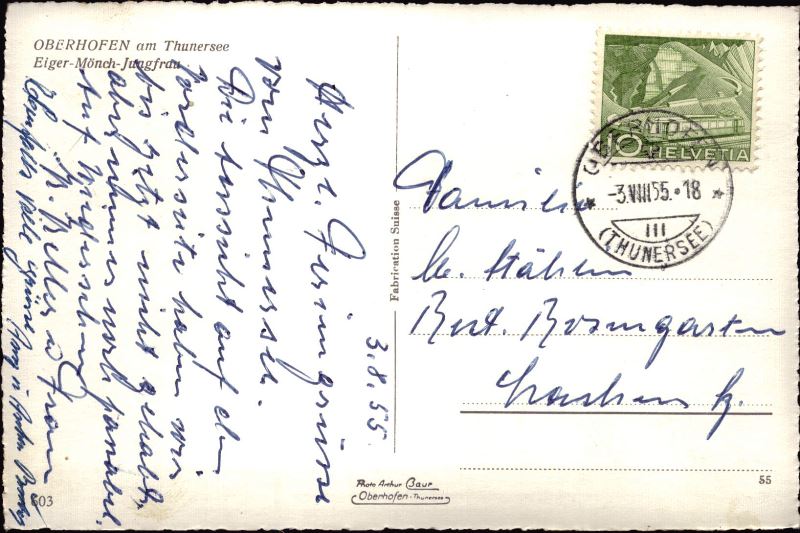 OBERHOFEN am Thunersee
Eiger-Mönch-Jungfrau
3.8.55.
Herzl. Feriengrüsse
vom Thunersee.
Die Aussicht auf der
Vorderseite haben wir
bis jetzt nicht gehabt,
aber immer noch
Auf Wiedersehen
Fr.
u. Frau
Ebenfalls viele Grüsse
603
Fabrication Suisse
Photo Arthur Baur
Oberhofen-Thunersee
10 HELVETIA
OBERHOFEN
-3.VIII.55.-18
III
(THUNERSEE)
Familie
Stähein
Rest. Baumgarten
Lachen Sz.
55